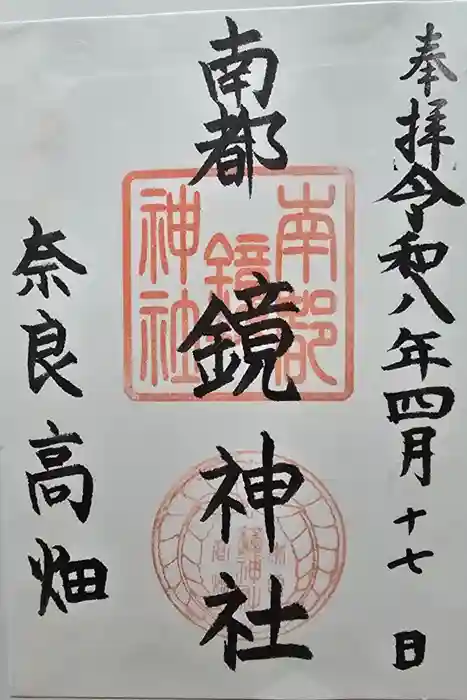 奉拝
令和八年四月十七日
南都
鏡神社
奈良高畑
南都
鏡
神社